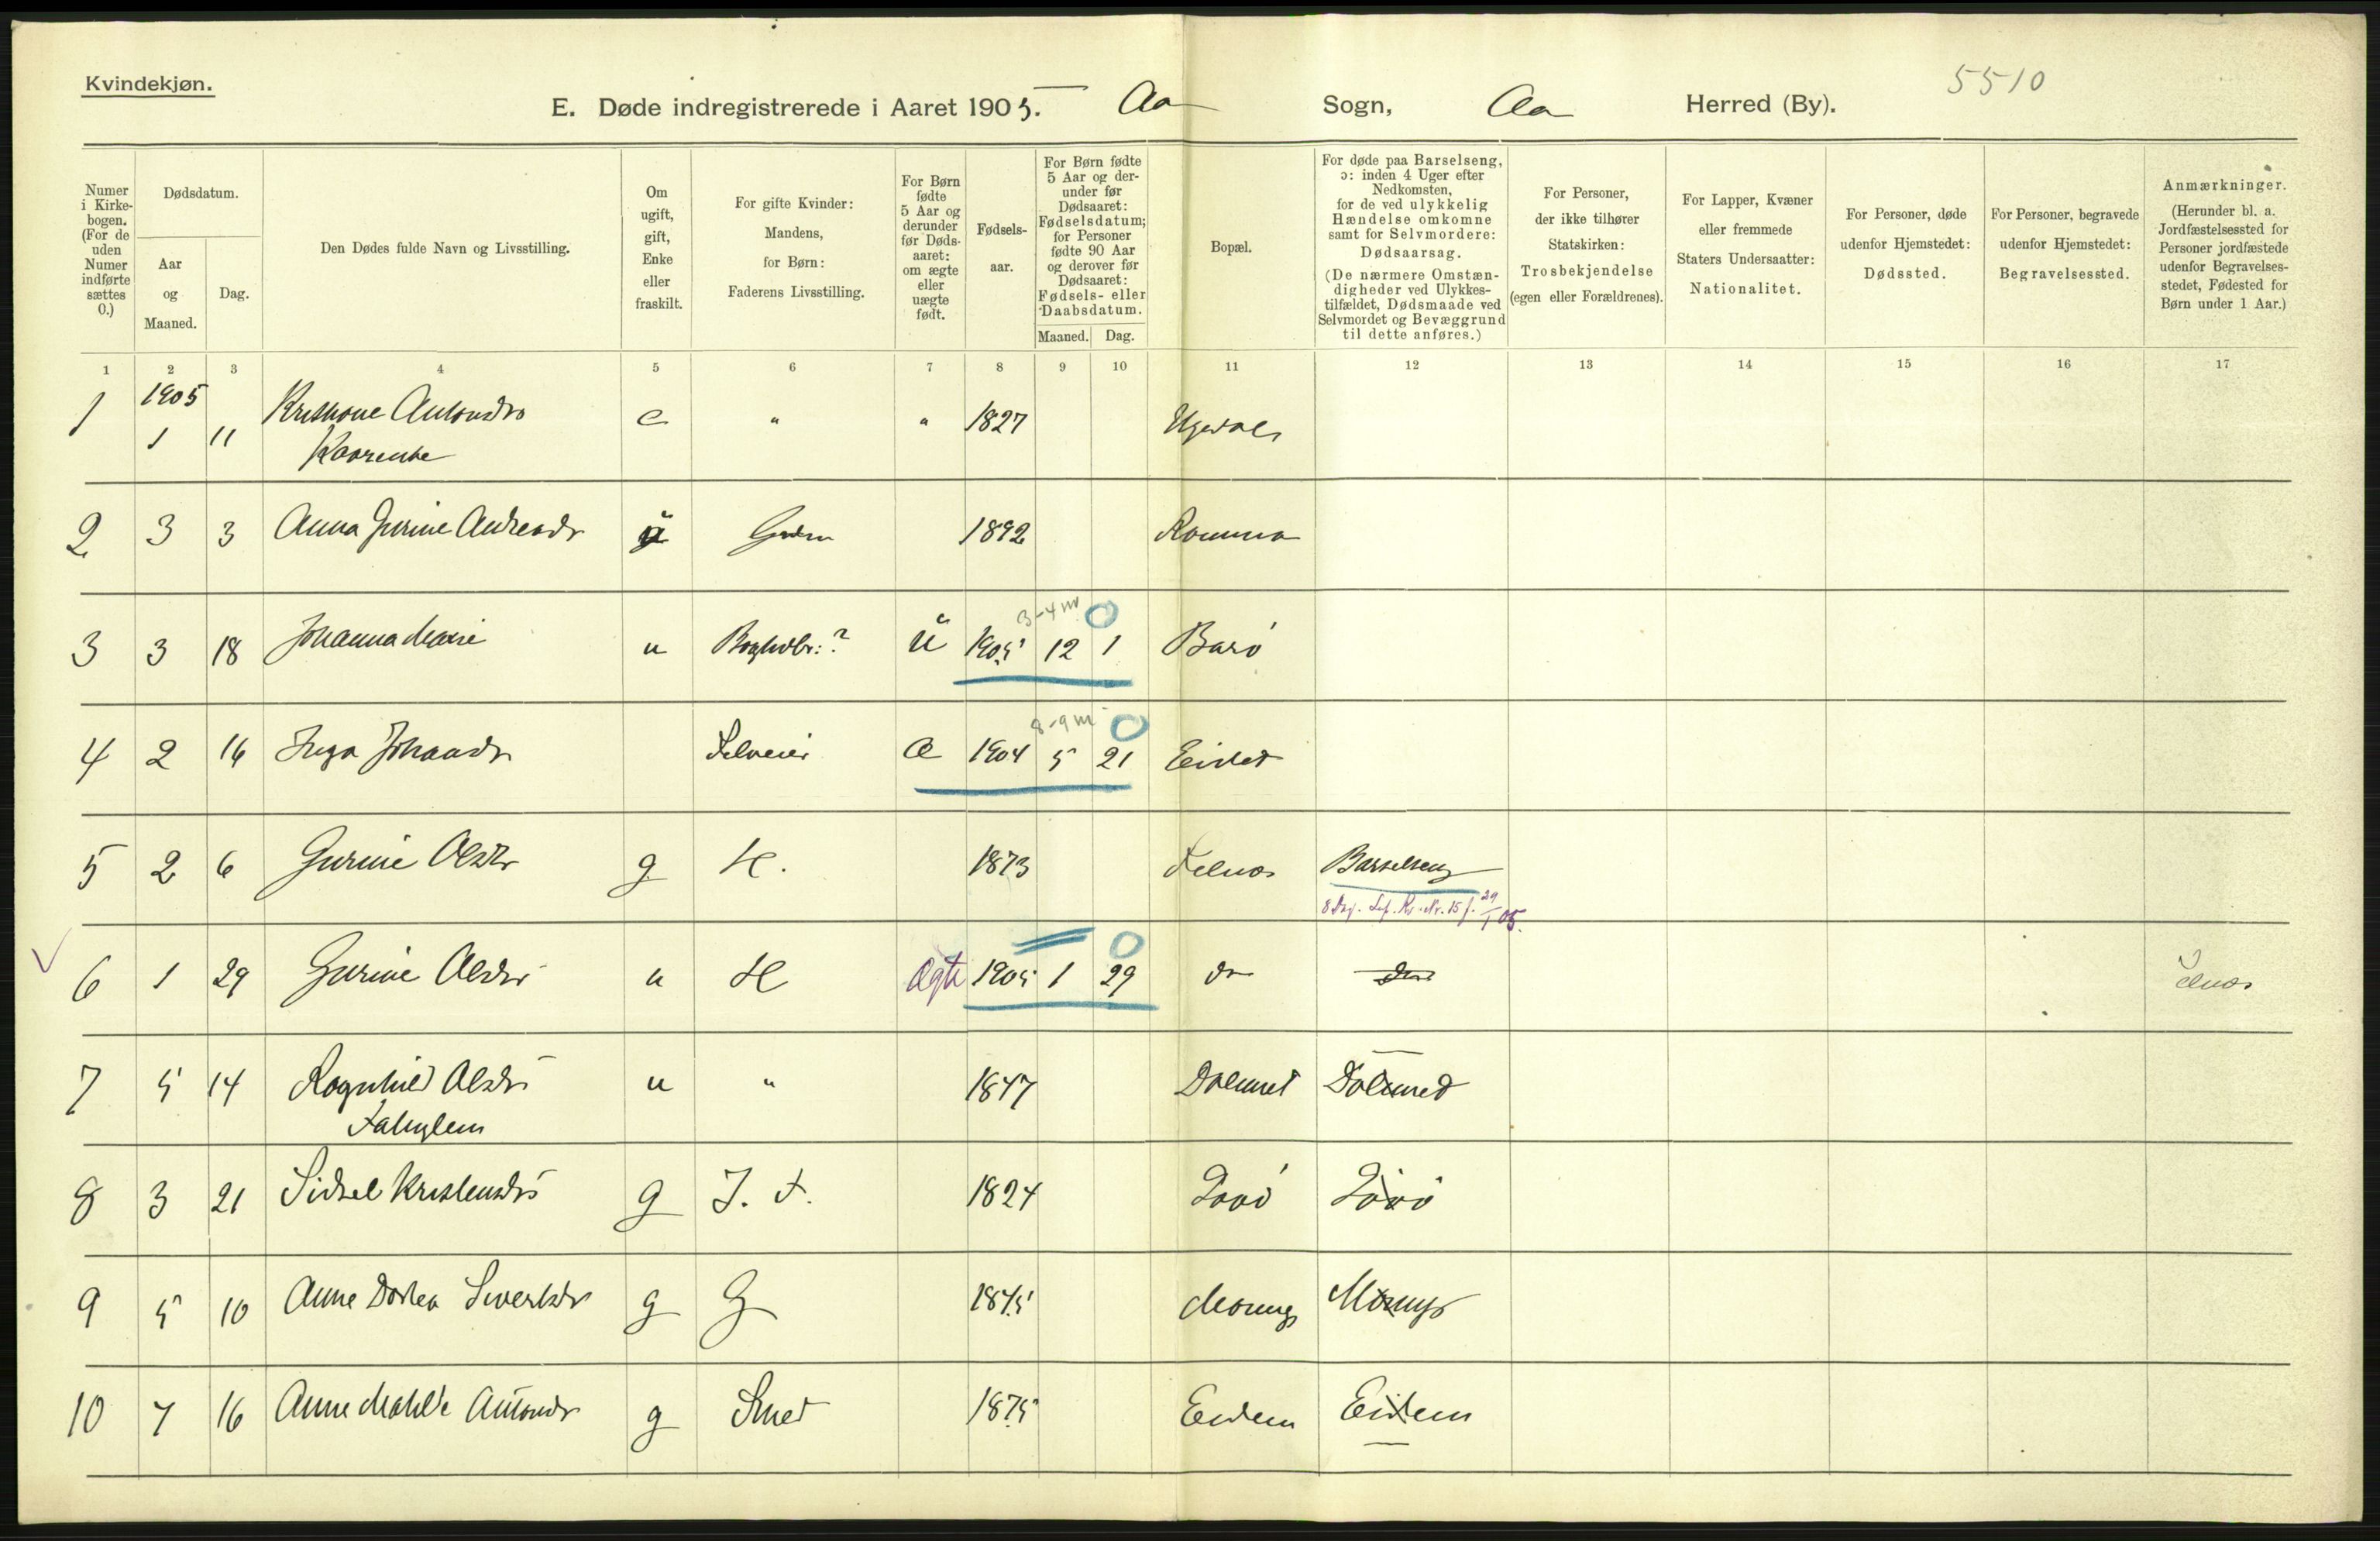 Kvindekjøn.
5510
E. Døde indregistrerede i Aaret 1905. Aa Sogn, Aa Herred (By).
Numer i Kirkebogen. (For de uden Numer indførte sættes 0.)
Dødsdatum.
Aar og Maaned.
Dag.
Den Dødes fulde Navn og Livsstilling.
Om ugift, gift, Enke eller fraskilt.
For gifte Kvinder: Mandens, for Børn: Faderens Livsstilling.
For Børn fødte 5 Aar og derunder før Dødsaaret: om ægte eller uægte født.
Fødselsaar.
For Børn fødte 5 Aar og derunder før Dødsaaret: Fødselsdatum; for Personer fødte 90 Aar og derover før Dødsaaret: Fødsels- eller Daabsdatum.
Maaned. Dag.
Bopæl.
For døde paa Barselseng, ɔ: inden 4 Uger efter Nedkomsten, for de ved ulykkelig Hændelse omkomne samt for Selvmordere: Dødsaarsag. (De nærmere Omstændigheder ved Ulykkestilfældet, Dødsmaade ved Selvmordet og Bevæggrund til dette anføres.)
For Personer, der ikke tilhører Statskirken: Trosbekjendelse (egen eller Forældrenes).
For Lapper, Kvæner eller fremmede Staters Undersaatter: Nationalitet.
For Personer, døde udenfor Hjemstedet: Dødssted.
For Personer, begravede udenfor Hjemstedet: Begravelsessted.
Anmærkninger. (Herunder bl. a. Jordfæstelsessted for Personer jordfæstede udenfor Begravelsesstedet, Fødested for Børn under 1 Aar.)
1 2 3 4 5 6 7 8 9 10 11 12 13 14 15 16 17
1905
1 1 11 Antonsdr e " " 1827
2 3 3 Anna Gurine Andreasdr u 1892
3-4 m 0
3 3 18 Johanna Marie u ? u 1905 12 1 Barø
8-9 m 0
4 2 16 Inga Johansdr Selveier 1904 5 21 Eidet
5 2 6 Gurine Olsdr g H. 1873 Selnes Barselseng
0
6 1 29 Gurine Olsdr u H Ægte 1905 1 29 do do Selnes
7 5 14 Ragnhild Olsdr u " 1847 Dalemet Dalemet
8 3 21 Sidsel Kristensdr g J. F. 1824
9 5 10 Anne Dortea Sivertsdr g G 1845
10 7 16 Anne Antonsdr g Smed 1875 Eidem Eidem